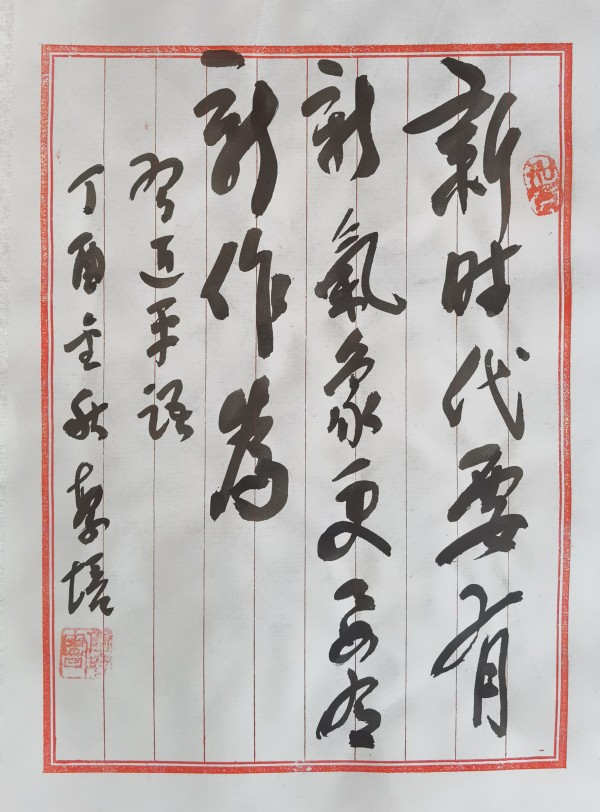 新时代要有
新氣象更要有
新作為
习近平语
丁酉金秋黎培